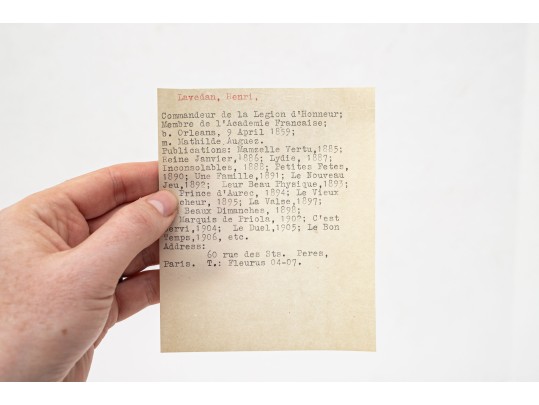 Lavedan, Henri,
Commandeur de la Legion d'Honneur;
Membre de l'Academie Francaise;
b. Orleans, 9 April 1859;
m. Mathilde Auguez.
Publications: Mamzelle Vertu,1885;
Reine Janvier,1886; Lydie, 1887;
Inconsolables, 1888; Petites Fetes,
1890; Une Famille,1891; Le Nouveau
Jeu,189?; Leur Beau Physique,1893;
Prince d'Aurec, 1894; Le Vieux
cheur, 1895; La Valse,1897;
Beaux Dimanches, 1898;
Marquis de Priola, 190?; C'est
ervi,1904; Le Duel,1905; Le Bon
Temps,1906, etc.
Address:
60 rue des Sts. Peres,
Paris. T.: Fleurus 04-07.